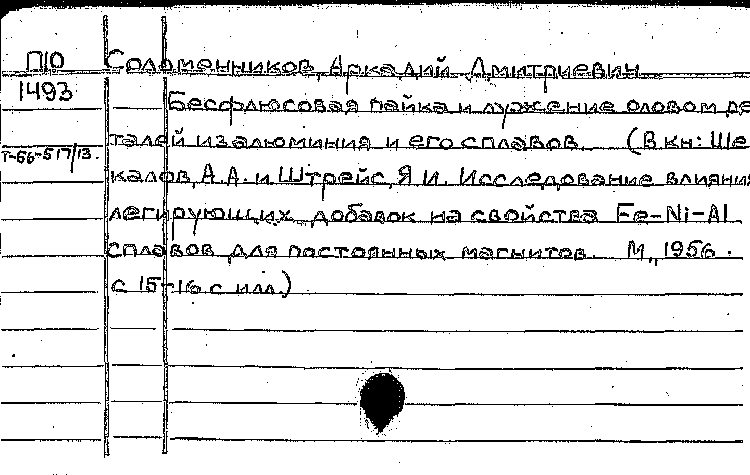 П10 Соломенников, Аркадий Дмитриевич
1493
Бесфлюсовая пайка и лужение оловом де
Т-56-517/13. талей из алюминия и его сплавов. (В кн: Ше
калов, А.А. и Штрейс, Я И. Исследование влияни
легирующих добавок на свойства Fe-Ni-Al
сплавов для постоянных магнитов. М., 1956.
с 15-16 с илл.)